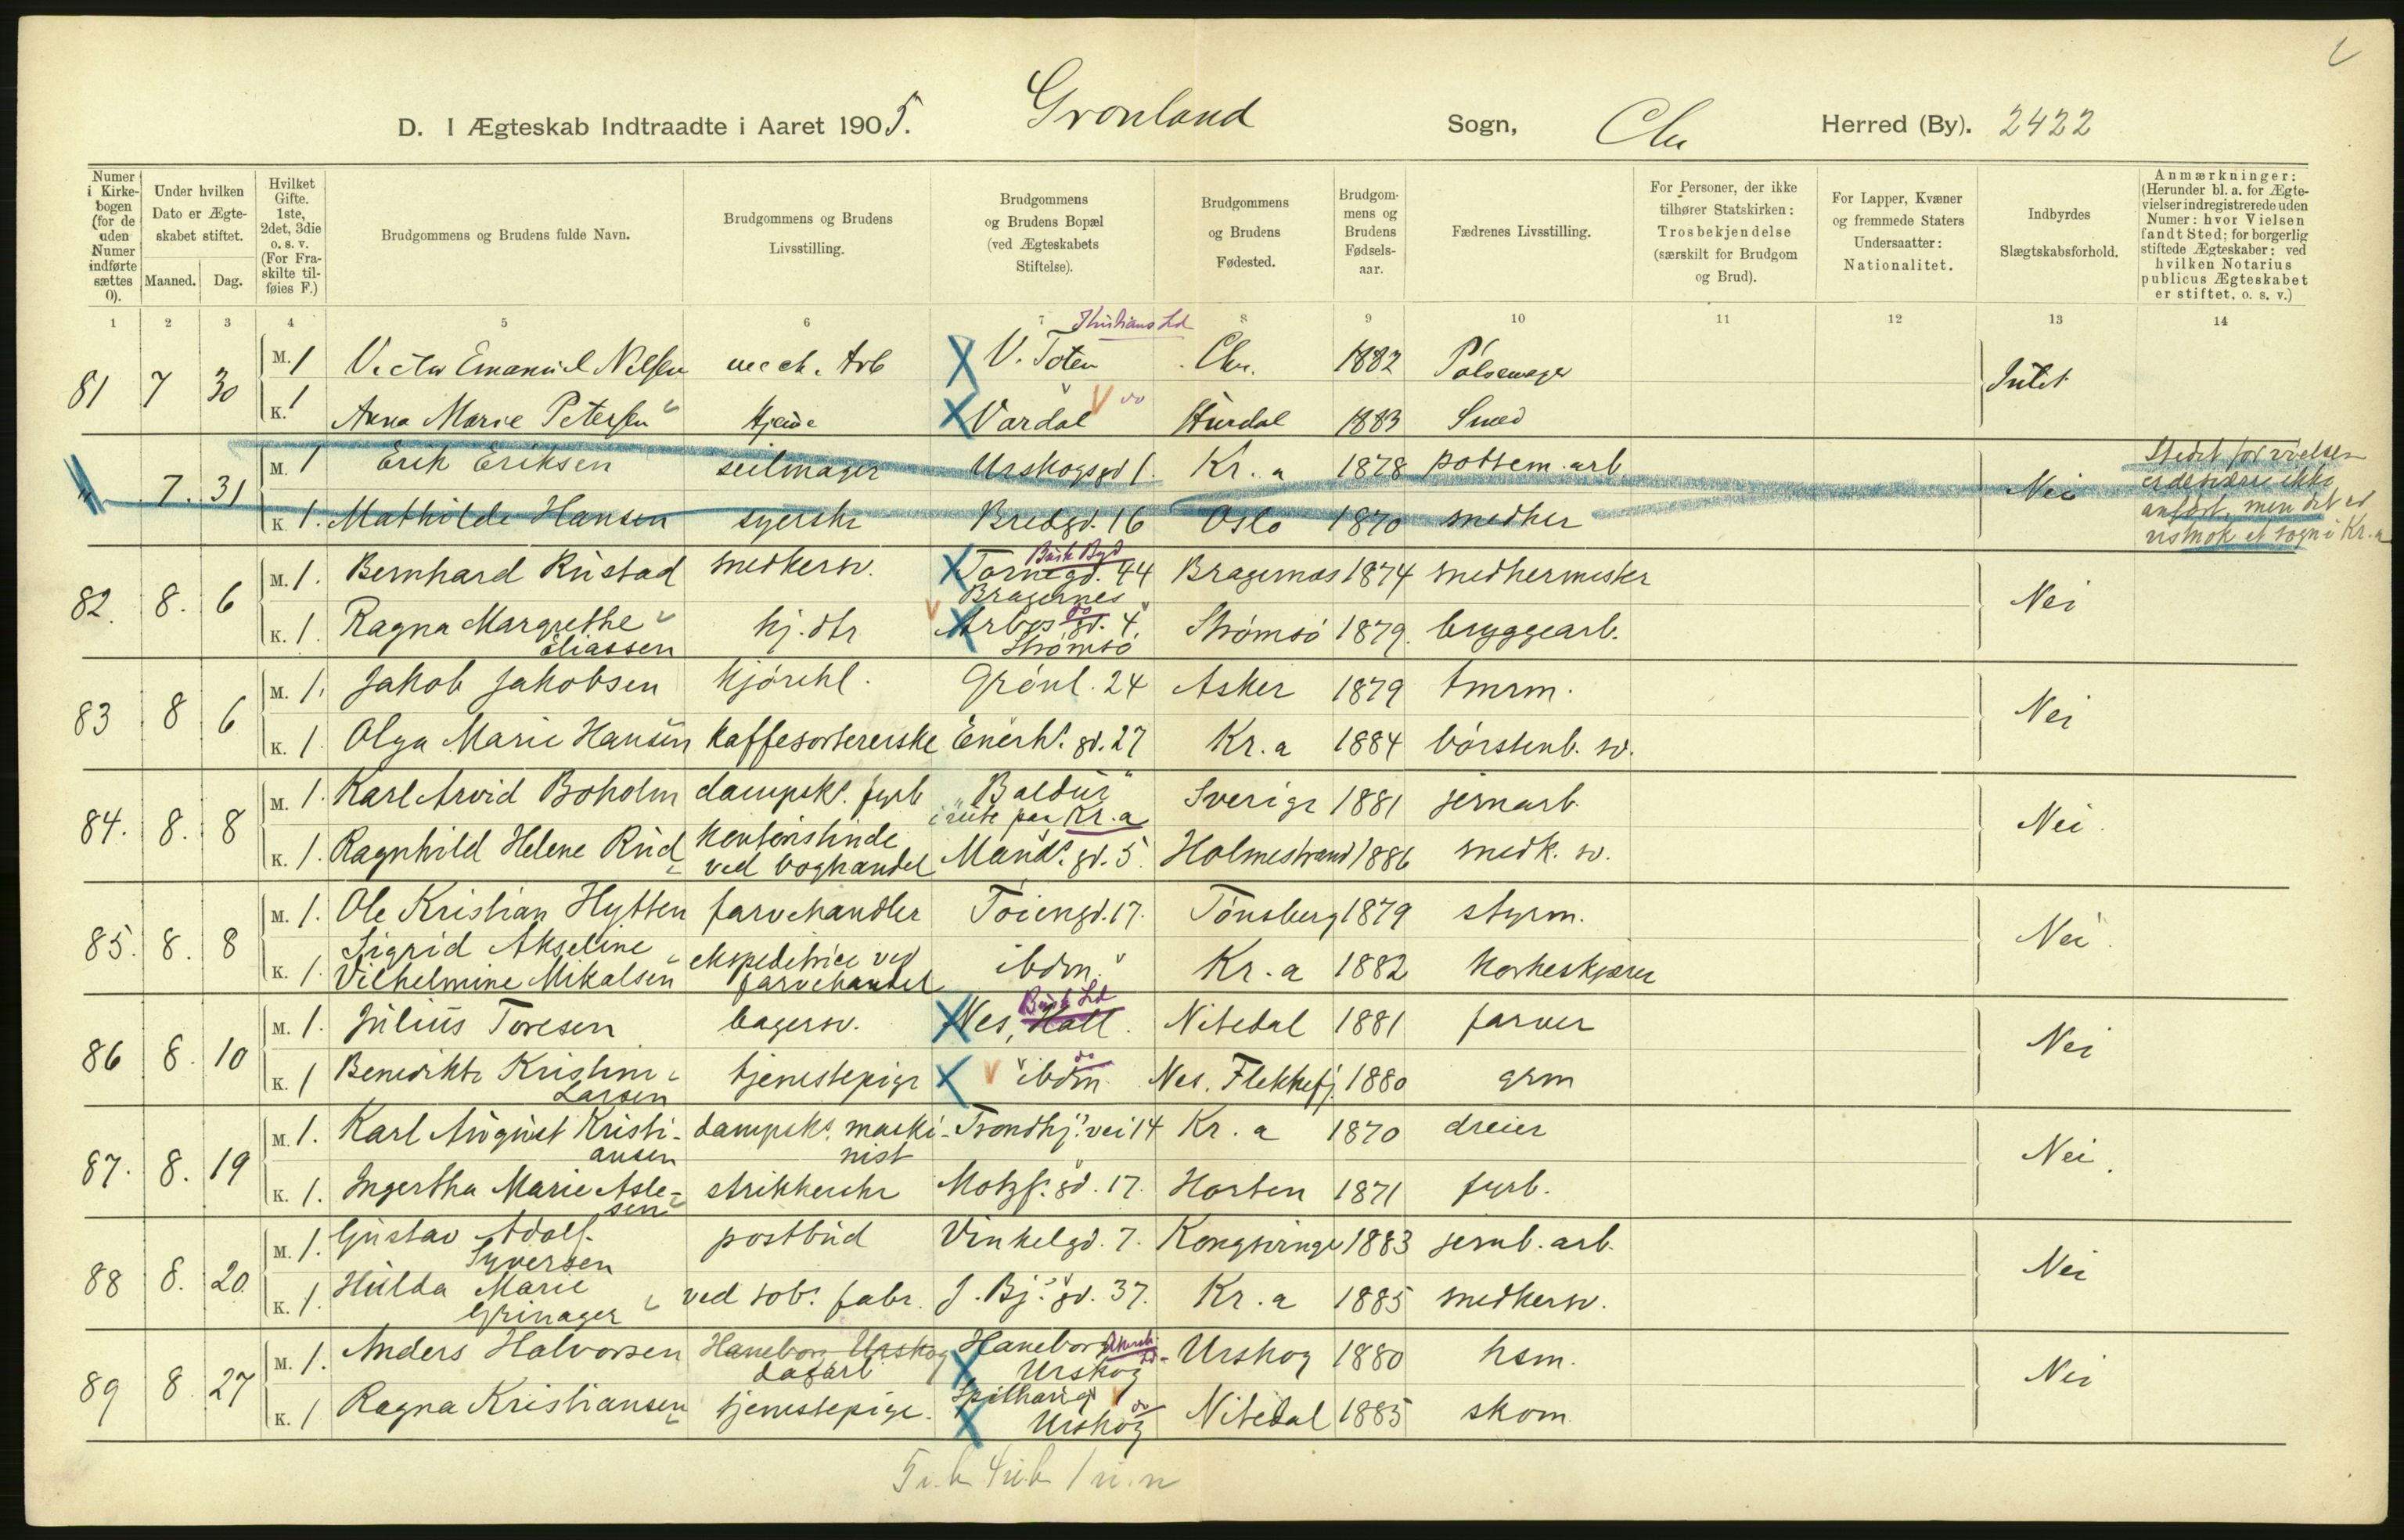 D. I Ægteskab Indtraadte i Aaret 1905. Grønland Sogn, Chr Herred (By). 2422
Numer i Kirkebogen (for de uden Numer indførte sættes 0).
Under hvilken Dato er Ægteskabet stiftet.
Maaned. Dag.
Hvilket Gifte. 1ste, 2det, 3die o. s. v. (For Fraskilte tilføies F.)
Brudgommens og Brudens fulde Navn.
Brudgommens og Brudens Livsstilling.
Brudgommens og Brudens Bopæl (ved Ægteskabets Stiftelse).
Brudgommens og Brudens Fødested.
Brudgommens og Brudens Fødselsaar.
Fædrenes Livsstilling.
For Personer, der ikke tilhører Statskirken: Trosbekjendelse (særskilt for Brudgom og Brud).
For Lapper, Kvæner og fremmede Staters Undersaatter: Nationalitet.
Indbyrdes Slægtskabsforhold.
Anmærkninger: (Herunder bl. a. for Ægtevielser indregistrerede uden Numer: hvor Vielsen fandt Sted; for borgerlig stiftede Ægteskaber: ved hvilken Notarius publicus Ægteskabet er stiftet, o. s. v.)
1 2 3 4 5 6 7 8 9 10 11 12 13 14
Kristians Ld
81 7 30 M. 1 Victor Emanuel Nilsen mech. Arb V. Toten Chr. 1882 Pølsemager Intet
K. 1 Anna Marie Petersen Hjeme Vardal do Hurdal 1883 Smed
" 7. 31 M. 1 Erik Eriksen seilmager Urskogsgd 1. Kr.a 1878 pottem. arb. Nei
K 1. Mathilde Hansen syerske Bredgd. 16 Oslo 1870 snedker
Stedet for vielsen
er desværre ikke
anført, men det er
vistnok et sogn i Kr.a
82. 8. 6 M. 1. Bernhard Rustad snedkersv. Tornegd. 44 Bragernes Busk Byd Bragernæs 1874 snedkermester Nei
K. 1. Ragna Margrethe Eliassen hj. dtr Arbos gd. 4 Strømsø do Strømsø 1879. bryggearb.
83 8 6 M. 1. Jakob Jakobsen kjørekl. Grønl. 24 Asker 1879 tmrm. Nei
K. 1. Olga Marie Hansen kaffesortererske Enerh. gd. 27 Kr.a 1884 børstenb. sv.
84. 8. 8 M. 1. Karl Arvid Boholm dampsk. fyrb "Baldur" i rute paa Kr.a Sverige 1881 jernarb. Nei.
K. 1. Ragnhild Helene Rud kontoristinde ved boghandel Mands. gd. 5 Holmestrand 1886 snedk. sv.
85. 8. 8 M. 1. Ole Kristian Hytten farvehandler Tøiengd. 17. Tønsberg 1879 styrm. Nei.
K. 1. Sigrid Akseline Vilhelmine Mikalsen ekspeditrice ved farvehandel ibdm. Kr.a 1882 korkeskjærer
86 8. 10 M. 1. Julius Toresen bagersv. Nes, Hall. Busk Ld Nitedal 1881 farver Nei
K. 1 Benedikte Kristine Larsen tjenestepige ibdm. do Nes. Flekkefj. 1880 grm
87. 8. 19 M. 1. Karl August Kristiansen dampsk. maskinist Trondhj. vei 14 Kr.a 1870 dreier Nei.
K. 1. Ingertha Marie Aslesen strikkerske Motzf. gd. 17. Horten 1871 fyrb.
88 8. 20. M. 1. Gustav Adolf Syversen postbud Vinkelgd. 7. Kongsvinger 1883 jernb. arb. Nei
K. 1. Hulda Marie Grinager ved tob. fabr. J. Bj. gd. 37. Kr.a 1885 snedkersv.
89 8 27 M. 1. Anders Halvorsen Haneborg Urskog dagarb Haneborg Urskog Akersh. Ld Urskog 1880 hsm. Nei
K. 1 Ragna Kristiansen tjenestepige. Urskog do Nitedal 1885 skom.